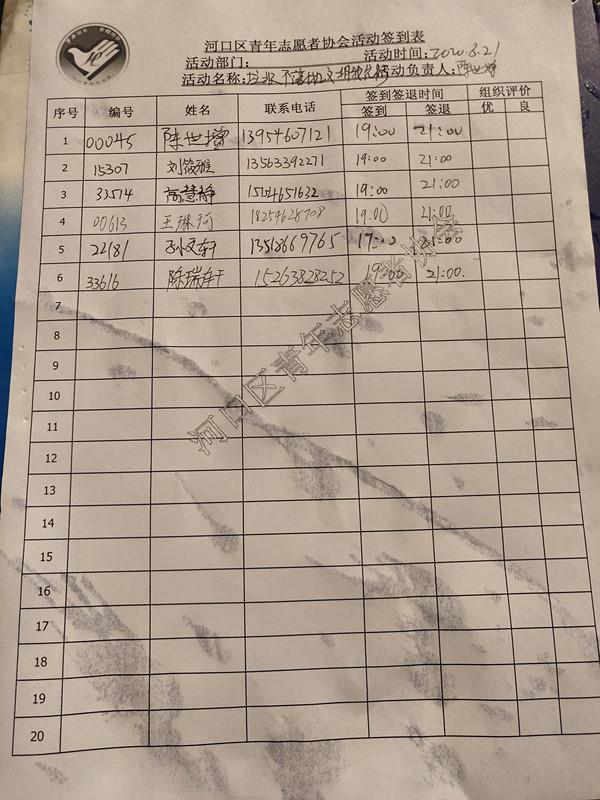 河口区青年志愿者协会活动签到表
活动部门: 活动时间: 2020.8.21
活动名称: 垃圾不落地文明 活动负责人: 陈世增
序号 编号 姓名 联系电话 签到签退时间 组织评价
签到 签退 优 良
1 00045 陈世增 13954607121 19:00 21:00
2 15307 刘筱雅 13563392271 19:00 21:00
3 32574 高慧静 19:00 21:00
4 00613 王琳河 18254628708 19:00 21:00
5 22181 19:00 21:00
6 33616 陈瑞轩 15263828252 19:00 21:00.
7
8
9
10
11
12
13
14
15
16
17
18
19
20
河口区青年志愿者协会